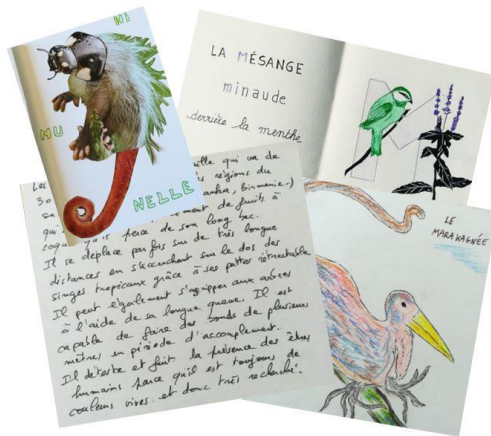 NI
MU
NELLE
LA MÉSANGE
minaude
derrière la menthe
M
LE
MARAKAGNÉE
Les
taille qui va de
30
régions du
birmanie
qui
de fruits à
coque perce de son long bec.
Il se déplace parfois sur de très longue
distances en s'accrochant sur le dos des
singes tropicaux grâce à ses pattes rétractable
Il peut également s'agripper aux arbres
à l'aide de sa longue queue. Il est
capable de faire des bonds de plusieurs
mètres en période d'accouplement.
Il déteste et fuit la présence des êtres
humains parce qu'il est toujours de
couleurs vives et donc très recherché.